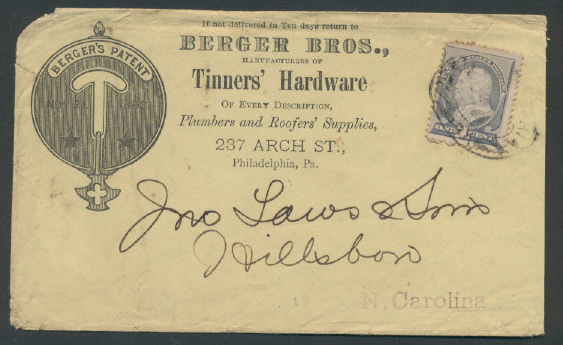 If not delivered in Ten days return to
BERGER BROS.,
MANUFACTURERS OF
Tinners' Hardware
OF EVERY DESCRIPTION,
Plumbers and Roofers' Supplies,
237 ARCH ST.,
Philadelphia, Pa.
BERGER'S PATENT
NOV. 21
ONE CENT
Jno Laws & Sons
Hillsboro
N. Carolina